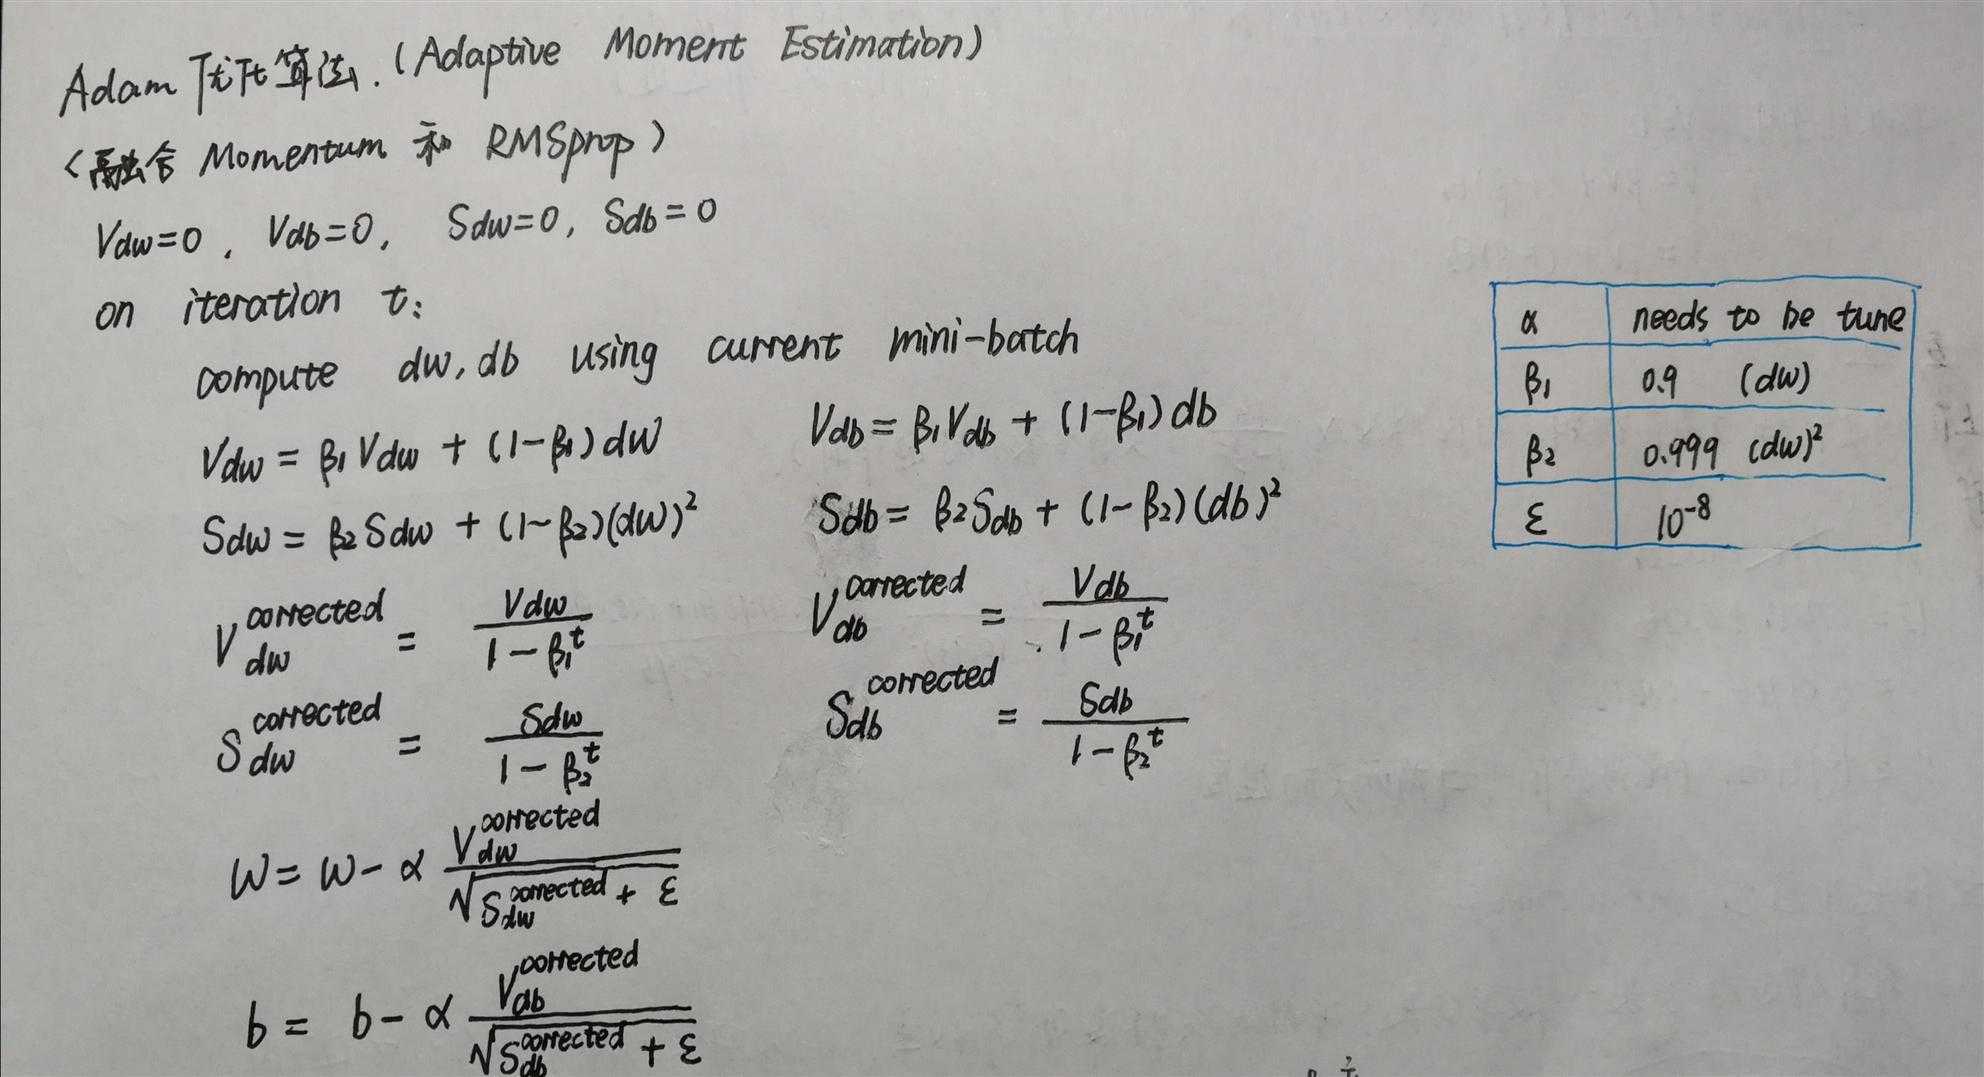 Adam 优化算法.(Adaptive Moment Estimation)
(融合 Momentum 和 RMSprop)
Vdw=0, Vdb=0, Sdw=0, Sdb=0
on iteration t:
compute dw, db using current mini-batch
Vdw = β₁Vdw + (1-β₁)dW Vdb = β₁Vdb + (1-β₁)db
Sdw = β₂Sdw + (1-β₂)(dW)² Sdb = β₂Sdb + (1-β₂)(db)²
V_dw^corrected = Vdw / (1-β₁^t) V_db^corrected = Vdb / (1-β₁^t)
S_dw^corrected = Sdw / (1-β₂^t) S_db^corrected = Sdb / (1-β₂^t)
W = W - α V_dw^corrected / √(S_dw^corrected + ε)
b = b - α V_db^corrected / √(S_db^corrected + ε)
α needs to be tune
β₁ 0.9 (dw)
β₂ 0.999 (dw)²
ε 10⁻⁸